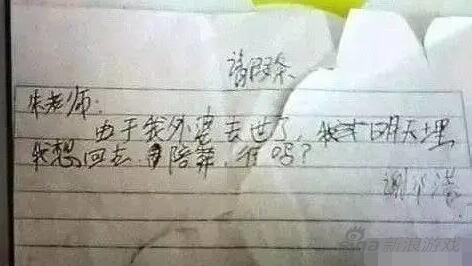 请假条
朱老师：
由于我外婆去世了，我明天埋
我想回去陪葬，行吗？
谢
sina新浪游戏